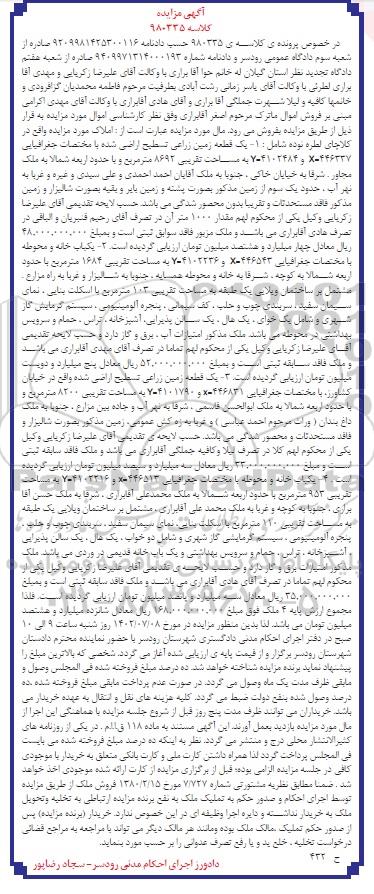 آگهی مزایده
کلاسه ۹۸۰۳۳۵
در خصوص پرونده ی کلاسه ی ۹۸۰۳۳۵ حسب دادنامه ۹۲۰۹۹۸۱۴۲۵۳۰۰۱۱۶ صادره از
شعبه سوم دادگاه عمومی رودسر و دادنامه شماره ۹۴۰۹۹۷۱۳۱۴۰۰۰۱۹۳ صادره از شعبه هفتم
دادگاه تجدید نظر استان گیلان له خانم حوا آقا برازی با وکالت آقای علیرضا زکریایی و مهدی آقا
برازی لطرئی با وکالت آقای یاسر زمانی رشت آبادی بطرفیت مرحوم فاطمه محمدیان گزافرودی و
خانمها کافیه و لیلا شهرت جملگی آقا برازی و آقای هادی آقابرازی با وکالت آقای مهدی اکرامی
مبنی بر فروش اموال ماترک مرحوم اصغر آقابرازی وفق نظر کارشناسی اموال مورد مزایده به قرار
ذیل از طریق مزایده بفروش می رود. مال مورد مزایده عبارت است از : املاک مورد مزایده واقع در
کلاچای لطره نوده شامل : ۱- یک قطعه زمین زراعی تسطیح اراضی شده با مختصات جغرافیایی
X=۴۴۶۳۳۷ و Y=۴۱۰۲۴۸۴ به مساحت تقریبی ۸۶۹۲ مترمربع و با حدود اربعه شمالا به ملک
مجاور . شرقا به خیابان خاکی ، جنوبا به ملک آقایان احمد احمدی و علی سیدی و غیره و غربا به
نهر آب ، حدود یک سوم از زمین مذکور بصورت پشته و زمین بایر و بقیه بصورت شالیزار و زمین
مذکور فاقد مستحدثات و تقریبا بدون محصور شدگی می باشد. حسب لایحه تقدیمی آقای علیرضا
زکریایی وکیل یکی از محکوم لهم مقدار ۱۰۰۰ متر آن در تصرف آقای رحیم قنبریان و الباقی در
تصرف هادی آقابرازی می باشد و ملک مزبور فاقد سوابق ثبتی است و بمبلغ ۴۸,۰۰۰,۰۰۰,۰۰۰
ریال معادل چهار میلیارد و هشتصد میلیون تومان ارزیابی گردیده است. ۲- یکباب خانه و محوطه
با مختصات جغرافیایی X=۴۴۶۵۴۳ و Y=۴۱۰۲۲۳۶ به مساحت تقریبی ۱۶۸۴ مترمربع با حدود
اربعه شمالا به کوچه ، شرقا به خانه و محوطه همسایه ، جنوبا به شالیزار و غربا به راه مزارع .
مشتمل بر ساختمان ویلایی یک طبقه به مساحت تقریبی ۱۰۳ مترمربع با اسکلت بنایی ، نمای
سیمان سفید ، سربندی چوب و حلب ، کف سیمانی ، پنجره آلومینیومی ، سیستم گرمایش گاز
شهری و شامل یک خواب ، یک هال ، یک سالن پذیرایی، آشپزخانه ، تراس ، حمام و سرویس
بهداشتی در محوطه می باشد. ملک مذکور امتیازات آب ، برق و گاز دارد و حسب لایحه تقدیمی
آقای علیرضا زکریایی وکیل یکی از محکوم لهم تماما در تصرف آقای مهدی آقابرازی می باشد
و ملک فاقد سابقه ثبتی است و بمبلغ ۵۲,۰۰۰,۰۰۰,۰۰۰ ریال معادل پنج میلیارد و دویست
میلیون تومان ارزیابی گردیده است. ۳- یک قطعه زمین زراعی تسطیح اراضی شده واقع در خیابان
کشاورز، با مختصات جغرافیایی X=۴۴۶۸۳۱ و Y=۴۱۰۱۷۹۰ به مساحت تقریبی ۸۲۰۰ مترمربع و
با حدود اربعه شمالا به ملک ابوالحسن قاسمی ، شرقا به نهر آب و جاده بین مزارع ، جنوبا به ملک
داغ بندان ( وراث مرحوم احمد عباسی ) و غربا به زه کش عمومی، زمین مذکور بصورت شالیزار و
فاقد مستحدثات و محصور شدگی می باشد. حسب لایحه ی تقدیمی آقای علیرضا زکریایی وکیل
یکی از محکوم لهم کلا در تصرف لیلا وکافیه جملگی آقابرازی می باشد و ملک فاقد سابقه ثبتی
است و مبلغ ۳۳,۰۰۰,۰۰۰,۰۰۰ ریال معادل سه میلیارد و سیصد میلیون تومان ارزیابی گردیده
است. ۴- یکباب خانه و محوطه با مختصات جغرافیایی X=۴۴۶۵۱۳ و Y=۴۱۰۲۲۱۶ به مساحت
تقریبی ۹۵۳ مترمربع با حدود اربعه شمالا به ملک محمدعلی آقابرازی ، شرقا به ملک حسن آقا
برازی ، جنوبا به کوچه و غربا به ملک محمد علی آقابرازی ، مشتمل بر ساختمان ویلایی یک طبقه
به مساحت تقریبی ۱۱۰ مترمربع با اسکلت بنایی نمای سیمان سفید ، سربندی چوب و حلب ،
پنجره آلومینیومی ، سیستم گرمایشی گاز شهری و شامل دو خواب ، یک هال ، یک سالن پذیرایی
، آشپزخانه ، تراس ، حمام و سرویس بهداشتی و یک باب خانه قدیمی در وردی می باشد. ملک
مذکور امتیازات برق و گاز دارد و حسب لایحه ی تقدیمی آقای علیرضا زکریایی وکیل یکی از
محکوم لهم تماما در تصرف آقای هادی آقابرازی می باشد و ملک فاقد سابقه ثبتی است و بمبلغ
۳۵,۰۰۰,۰۰۰,۰۰۰ ریال معادل سه میلیارد و پانصد میلیون تومان ارزیابی گردیده است. فلذا
مجموع ارزش پایه ۴ ملک فوق مبلغ ۱۶۸,۰۰۰,۰۰۰,۰۰۰ ریال معادل شانزده میلیارد و هشتصد
میلیون تومان می باشد. لذا بدین منظور مزایده در مورخ ۱۴۰۲/۰۷/۰۸ روز شنبه ساعت ۹ الی ۱۰
صبح در دفتر اجرای احکام مدنی دادگستری شهرستان رودسر با حضور نماینده محترم دادستان
شهرستان رودسر برگزار و از قیمت پایه ی ارزیابی شده آغاز می گردد. شخصی که بالاترین مبلغ را
پیشنهاد نماید برنده مزایده شناخته خواهد شد. ده درصد مبلغ فروخته شده فی المجلس وصول و
مابقی ظرف مدت یک ماه وصول می گردد. در صورت عدم پرداخت مابقی مبلغ فروخته شده ،ده
درصد وصول شده بنفع دولت ضبط می گردد. کلیه هزینه های نقل و انتقال به عهده خریدار می
باشد. خریداران می توانند ظرف مدت پنج روز قبل از شروع جلسه مزایده با هماهنگی این اجرا از
مال مورد مزایده بازدید بعمل آورند. این آگهی مستند به ماده ۱۱۸ ق.ا.ا.م . در یکی از روزنامه های
کثیرالانتشار محلی درج و منتشر می گردد. نظر به اینکه ده درصد مبلغ فروخته شده می بایست
فی المجلس پرداخت گردد لذا همراه داشتن کارت ملی و کارت بانکی متعلق به خریدار با موجودی
کافی در جلسه مزایده الزامی بوده؛ قبل از برگزاری مزایده از کارت ارائه شده موجودی اخذ خواهد
شد . ضمنا مطابق نظریه مشورتی شماره ۷/۷۲۷ مورخ ۱۳۸۰/۲/۱۵ فروش ملک از طریق مزایده
توسط اجرای احکام و صدور حکم به تملیک ملک به نفع برنده مزایده ارتباطی به تخلیه وتحویل
ملک به خریدار نداشته و دایره اجرا وظیفه ای در این خصوص ندارد. خریدار (برنده مزایده) پس
از صدور حکم تملیک ،مالک ملک بوده ومانند هر مالک دیگر می تواند با مراجعه به مراجع قضائی
درخواست تخلیه ، خلع ید و یا رفع تصرف عدوانی را بر حسب مورد بنماید.
ح ۴۳۲ دادورز اجرای احکام مدنی رودسر- سجاد رضاپور